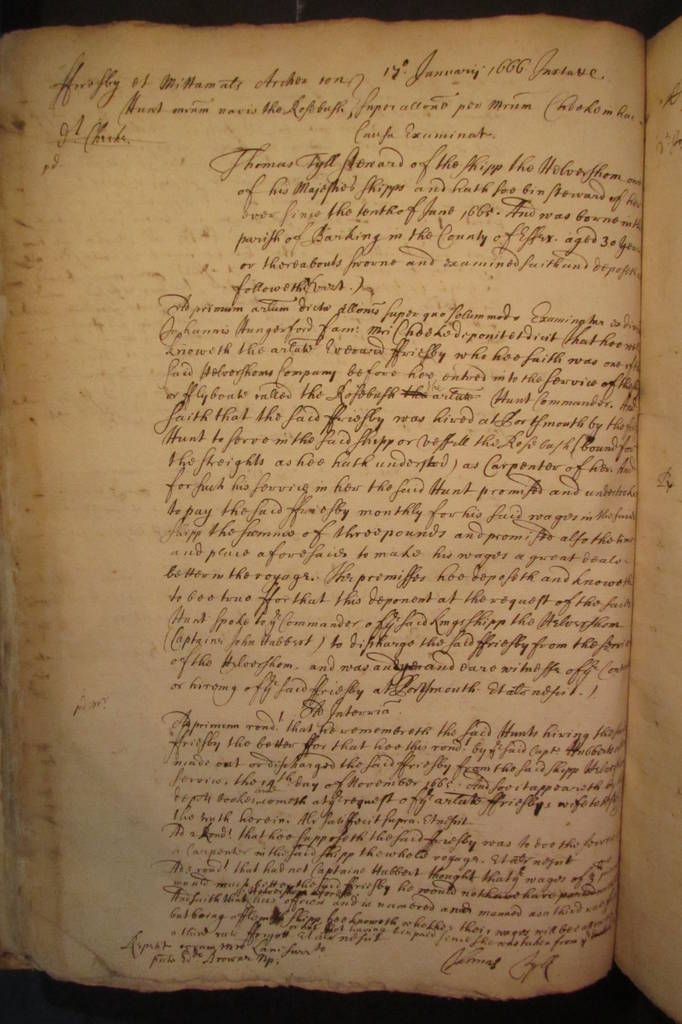 ffriesby et Mittam als Archer con 17o. Januarij 1666 Instante.
Hunt navis the Rosebush Super allone per Mrum Cheeke in hac
Causa Examinat.
dt Cheeke.
Thomas Tyll Steward of the shipp the Helversham one
of his Majesties shipps and hath soe bin steward of her
ever since the tenth of June 1665. And was borne in the
parish of Barking in the County of Essex. aged 30 yeares
or thereabouts sworne and examined saith and deposeth
followeth vizt.)
Ad primum arlum dicte allonis super quo solummodo Examinatur ex dire
Johannis Hungerford fam: mri Cheeke deponit et dicit That hee well
knoweth the arlate Everard ffriesby who hee saith was one of the
said Helvershams company before hee entred into the service of the shipp
or fflyboate called the Rosebush the arlate Hunt Commander. And
saith that the said ffriesby was hired at Portsmouth by the said
Hunt to serve in the said shipp or vessell the Rosebush (bound for
the streights as hee hath understood) as Carpenter of her. And
for such his service in her the said Hunt promised and undertooke
to pay the said ffriesby monthly for his said wages in the said
shipp the summe of three pounds and promised also the time
and place aforesaid to make his wages a great deale
better in the voyage. The premisses hee deposeth and knoweth
to bee true ffor that this deponent at the request of the said
Hunt spoke to ye Commander of ye said kings shipp the Helversham
(Captaine John Hubbert) to discharge the said ffriesby from the service
of the Helversham. and was an eye and eare witnesse of ye
or hireing of ye said ffriesby at Portsmouth. Et als nescit. /
Ad Interria.
Ad primum rendt. that he remembreth the said Hunts hireing the said
ffriesby the better ffor that hee this rendt. by ye said Capt. Hubberts
made out or discharged the said ffriesby from the said shipp Helversham
service. the 19th day of November 1665. And soe it appeareth
bookes at ye request of ye arlate ffriesbys wife to
the truth herein. Als satisfecit supra. Et nescit
Ad 2. rendt. that hee supposeth the said ffriesby was to doe the service
a Carpenter in the said shipp the whole voyage. Et als nescit
Ad 3. rendt. that had not Captaine Hubbert thought that ye wages of
would much better the said ffriesby he would not have have parted
And saith that hee and is numbered and manned as a third rate
but being a fflemish shipp hee knoweth whether their wages will bee
a third rate ffriggott or not haveing bin paid since she was taken from
Et als nescit
Repet coram
Browne Np.
Thomas Tyll